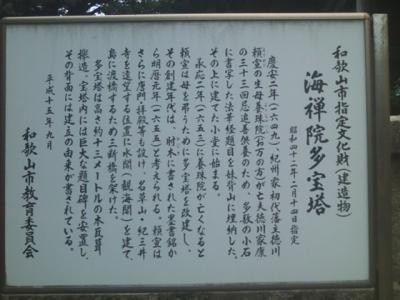 和歌山市指定文化財(建造物)
海禅院多宝塔
昭和四十二年二月十四日指定
慶安二年(一六四九)、紀州家初代藩主徳川
頼宣の生母養珠院(お万の方)が亡夫徳川家康
の三十三回忌追善供養のため、多数の小石
に書写した法華経題目を妹背山に埋納した、
その上に建てた小堂に始まる。
承応二年(一六五三)に養珠院が亡くなると
頼宣は母を弔うために多宝塔を改建し、
その創建年代は、肘木に書された墨書銘か
ら明暦元年(一六五五)と考えられる。頼宣は
さらに唐門・拝殿等も設け、名草山・紀三井
寺を遠望する位置に水閣(観海閣)を建て、
島に渡橋するため三断橋を架けた。
多宝塔は高さ約十三メートルの本瓦葺
櫓造。宝塔内には巨大な題目碑を安置し、
その背面には建立の由来が書されている。
平成十五年九月
和歌山市教育委員会